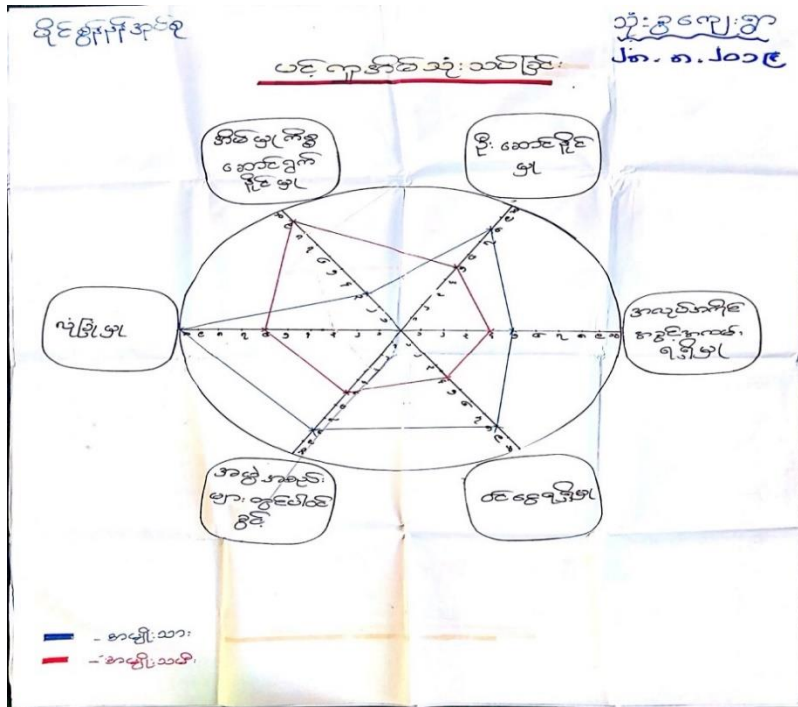 သုံးခွကျေးရွာ
၂၈.၈.၂၀၁၉
ပင့်ကူအိမ်သုံးသပ်ခြင်း
အိမ်မှုကိစ္စ
ဆောင်ရွက်
နိုင်မှု
ဦးဆောင်နိုင်
မှု
လုံခြုံမှု
အလုပ်အကိုင်
အခွင့်အလမ်း
ရရှိမှု
အဖွဲ့အစည်း
များတွင်ပါဝင်
ခွင့်
ဝင်ငွေရရှိမှု
- အမျိုးသား
- အမျိုးသမီး